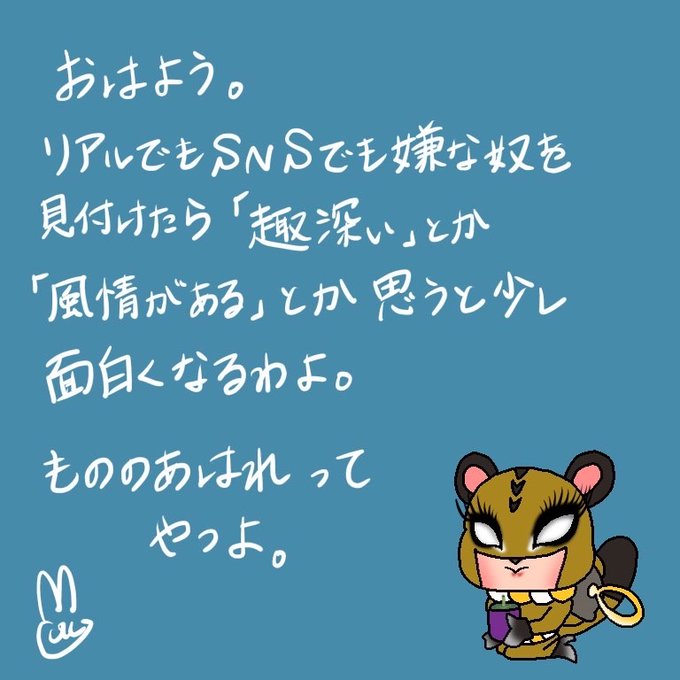 おはよう。
リアルでもSNSでも嫌な奴を
見付けたら「趣深い」とか
「風情がある」とか思うと少し
面白くなるわよ。
もののあはれって
やつよ。